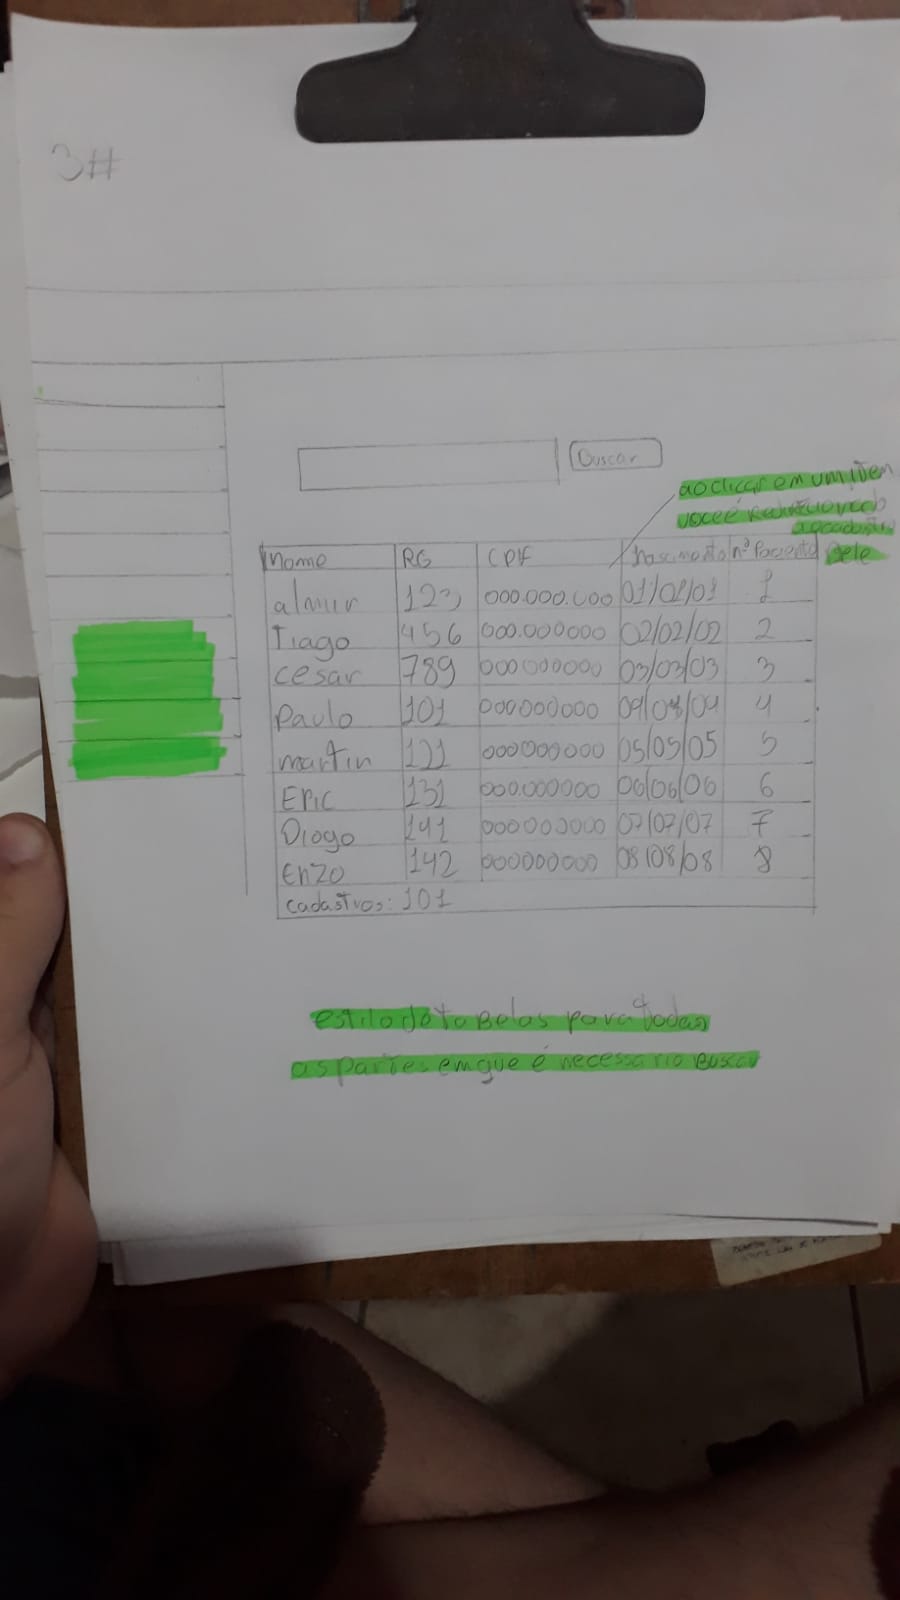 3#
Buscar
ao clicar em um iten
você é
ao cadastro
dele
nome RG CPF nascimento nº Paciente
almir 123 000.000.000 01/01/01 1
Tiago 456 000.000000 02/02/02 2
cesar 789 000000000 03/03/03 3
Paulo 101 000000000 04/04/04 4
martin 121 000000000 05/05/05 5
Eric 131 000.000000 06/06/06 6
Diogo 141 000000000 07/07/07 7
Enzo 142 000000000 08/08/08 8
cadastros: 101
estilo de tabelas para todas
as partes em que é necessario Buscar